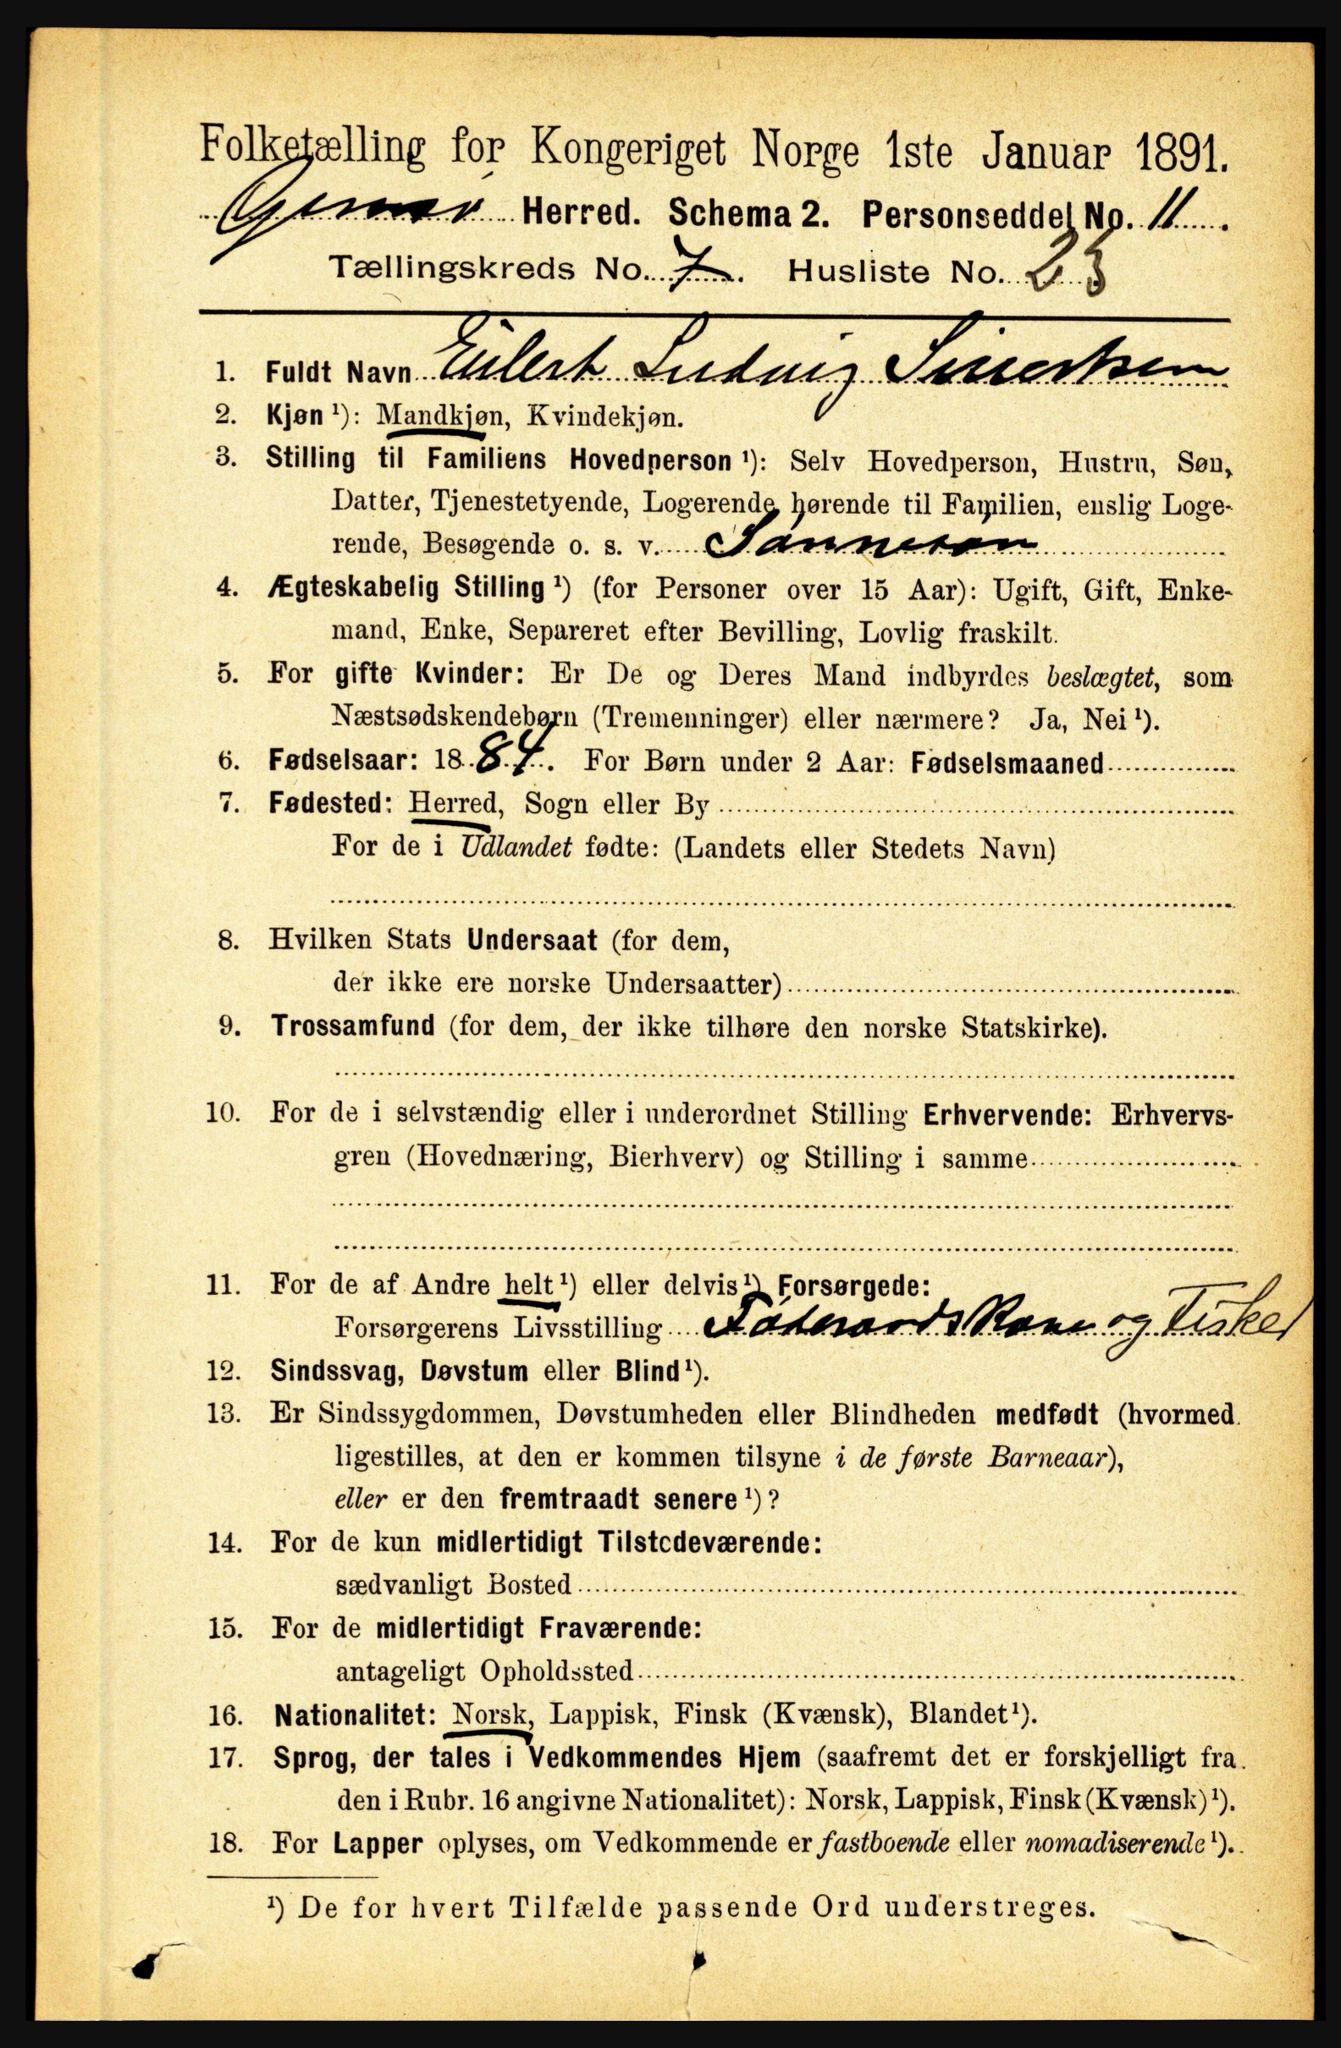 Folketælling for Kongeriget Norge 1ste Januar 1891.
Herred. Schema 2. Personseddel No. 11
Tællingskreds No. 7. Husliste No. 23
1. Fuldt Navn Eilert Ludvig Sivertsen
2. Kjøn ¹): Mandkjøn, Kvindekjøn.
3. Stilling til Familiens Hovedperson ¹): Selv Hovedperson, Hustru, Søn,
Datter, Tjenestetyende, Logerende hørende til Familien, enslig Loge-
rende, Besøgende o. s. v. Sønnesøn
4. Ægteskabelig Stilling ¹) (for Personer over 15 Aar): Ugift, Gift, Enke-
mand, Enke, Separeret efter Bevilling, Lovlig fraskilt.
5. For gifte Kvinder: Er De og Deres Mand indbyrdes beslægtet, som
Næstsødskendebørn (Tremenninger) eller nærmere? Ja, Nei ¹).
6. Fødselsaar: 1884. For Børn under 2 Aar: Fødselsmaaned
7. Fødested: Herred, Sogn eller By
For de i Udlandet fødte: (Landets eller Stedets Navn)
8. Hvilken Stats Undersaat (for dem,
der ikke ere norske Undersaatter)
9. Trossamfund (for dem, der ikke tilhøre den norske Statskirke).
10. For de i selvstændig eller i underordnet Stilling Erhvervende: Erhvervs-
gren (Hovednæring, Bierhverv) og Stilling i samme
11. For de af Andre helt ¹) eller delvis ¹) Forsørgede:
Forsørgerens Livsstilling Føderaadskone og Fisker
12. Sindssvag, Døvstum eller Blind ¹).
13. Er Sindssygdommen, Døvstumheden eller Blindheden medfødt (hvormed
ligestilles, at den er kommen tilsyne i de første Barneaar),
eller er den fremtraadt senere ¹)?
14. For de kun midlertidigt Tilstedeværende:
sædvanligt Bosted
15. For de midlertidigt Fraværende:
antageligt Opholdssted
16. Nationalitet: Norsk, Lappisk, Finsk (Kvænsk), Blandet ¹).
17. Sprog, der tales i Vedkommendes Hjem (saafremt det er forskjelligt fra
den i Rubr. 16 angivne Nationalitet): Norsk, Lappisk, Finsk (Kvænsk) ¹).
18. For Lapper oplyses, om Vedkommende er fastboende eller nomadiserende ¹).
¹) De for hvert Tilfælde passende Ord understreges.